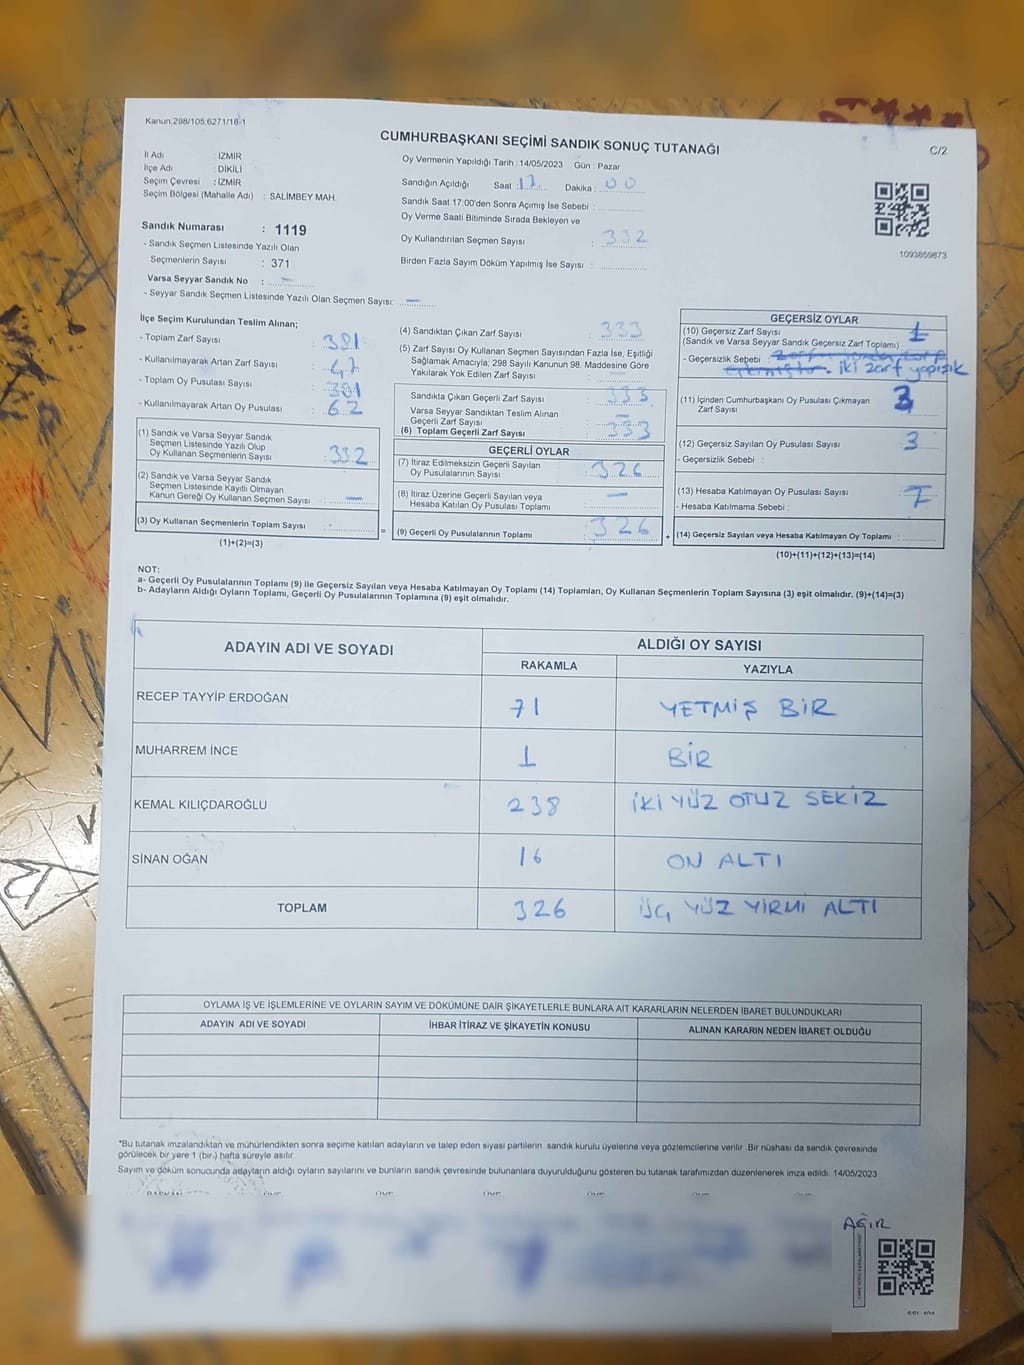 Kanun:298/105,6271/18-1
CUMHURBAŞKANI SEÇİMİ SANDIK SONUÇ TUTANAĞI
C/2
İl Adı : İZMİR
İlçe Adı : DİKİLİ
Seçim Çevresi : İZMİR
Seçim Bölgesi (Mahalle Adı) : SALİMBEY MAH.
Oy Vermenin Yapıldığı Tarih :14/05/2023 Gün : Pazar
Sandığın Açıldığı Saat :17 Dakika : 00
Sandık Saat 17:00'den Sonra Açımış İse Sebebi :
Oy Verme Saati Bitiminde Sırada Bekleyen ve
Oy Kullandırılan Seçmen Sayısı : 332
Birden Fazla Sayım Döküm Yapılmış İse Sayısı :
1093859873
Sandık Numarası : 1119
- Sandık Seçmen Listesinde Yazılı Olan
Seçmenlerin Sayısı : 371
Varsa Seyyar Sandık No : -
- Seyyar Sandık Seçmen Listesinde Yazılı Olan Seçmen Sayısı: -
İlçe Seçim Kurulundan Teslim Alınan;
- Toplam Zarf Sayısı : 381
- Kullanılmayarak Artan Zarf Sayısı : 47
- Toplam Oy Pusulası Sayısı : 391
- Kullanılmayarak Artan Oy Pusulası : 62
(1) Sandık ve Varsa Seyyar Sandık
Seçmen Listesinde Yazılı Olup
Oy Kullanan Seçmenlerin Sayısı : 332
(2) Sandık ve Varsa Seyyar Sandık
Seçmen Listesinde Kayıtlı Olmayan
Kanun Gereği Oy Kullanan Seçmen Sayısı : -
(3) Oy Kullanan Seçmenlerin Toplam Sayısı :
(1)+(2)=(3)
(4) Sandıktan Çıkan Zarf Sayısı : 333
(5) Zarf Sayısı Oy Kullanan Seçmen Sayısından Fazla İse, Eşitliği
Sağlamak Amacıyla; 298 Sayılı Kanunun 98. Maddesine Göre
Yakılarak Yok Edilen Zarf Sayısı :
Sandıkta Çıkan Geçerli Zarf Sayısı : 333
Varsa Seyyar Sandıktan Teslim Alınan
Geçerli Zarf Sayısı : -
(6) Toplam Geçerli Zarf Sayısı : 333
GEÇERLİ OYLAR
(7) İtiraz Edilmeksizin Geçerli Sayılan
Oy Pusulalarının Sayısı : 326
(8) İtiraz Üzerine Geçerli Sayılan veya
Hesaba Katılan Oy Pusulası Toplamı : -
= (9) Geçerli Oy Pusulalarının Toplamı : 326
GEÇERSİZ OYLAR
(10) Geçersiz Zarf Sayısı : 1
(Sandık ve Varsa Seyyar Sandık Geçersiz Zarf Toplamı)
- Geçersizlik Sebebi :
iki zarf yapışık
(11) İçinden Cumhurbaşkanı Oy Pusulası Çıkmayan
Zarf Sayısı : 3
(12) Geçersiz Sayılan Oy Pusulası Sayısı : 3
- Geçersizlik Sebebi :
(13) Hesaba Katılmayan Oy Pusulası Sayısı : 7
- Hesaba Katılmama Sebebi :
+ (14) Geçersiz Sayılan veya Hesaba Katılmayan Oy Toplamı :
(10)+(11)+(12)+(13)=(14)
NOT:
a- Geçerli Oy Pusulalarının Toplamı (9) ile Geçersiz Sayılan veya Hesaba Katılmayan Oy Toplamı (14) Toplamları, Oy Kullanan Seçmenlerin Toplam Sayısına (3) eşit olmalıdır. (9)+(14)=(3)
b- Adayların Aldığı Oyların Toplamı, Geçerli Oy Pusulalarının Toplamına (9) eşit olmalıdır.
ADAYIN ADI VE SOYADI ALDIĞI OY SAYISI
RAKAMLA YAZIYLA
RECEP TAYYİP ERDOĞAN 71 YETMİŞ BİR
MUHARREM İNCE 1 BİR
KEMAL KILIÇDAROĞLU 238 İKİ YÜZ OTUZ SEKİZ
SİNAN OĞAN 16 ON ALTI
TOPLAM 326 ÜÇ YÜZ YİRMİ ALTI
OYLAMA İŞ VE İŞLEMLERİNE VE OYLARIN SAYIM VE DÖKÜMÜNE DAİR ŞİKAYETLERLE BUNLARA AİT KARARLARIN NELERDEN İBARET BULUNDUKLARI
ADAYIN ADI VE SOYADI İHBAR İTİRAZ VE ŞİKAYETİN KONUSU ALINAN KARARIN NEDEN İBARET OLDUĞU
*Bu tutanak imzalandıktan ve mühürlendikten sonra seçime katılan adayların ve talep eden siyasi partilerin sandık kurulu üyelerine veya gözlemcilerine verilir. Bir nüshası da sandık çevresinde
görülecek bir yere 1 (bir.) hafta süreyle asılır.
Sayım ve döküm sonucunda adayların aldığı oyların sayılarını ve bunların sandık çevresinde bulunanlara duyurulduğunu gösteren bu tutanak tarafımızdan düzenlenerek imza edildi. 14/05/2023
AĞIR